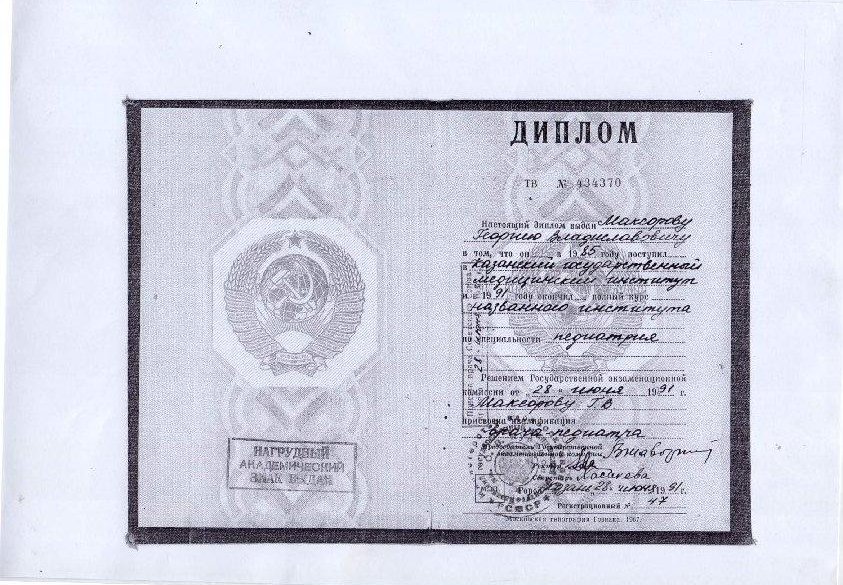 НАГРУДНЫЙ
АКАДЕМИЧЕСКИЙ
ЗНАК ВЫДАН
ДИПЛОМ
ТВ № 434370
Настоящий диплом выдан Максорову
Георгию Владиславовичу
в том, что он в 1985 году поступил
в Казанский государственный
медицинский институт
и в 1991 году окончил полный курс
названного института
по специальности педиатрия
Решением Государственной экзаменационной
комиссии от 28 июня 1991 г.
Максорову Г.В.
присвоена квалификация
врача-педиатра
Председатель Государственной
экзаменационной комиссии
Ректор
Секретарь
Город 28 июня 1991 г.
Регистрационный № 47
Московская типография Гознака. 1987.